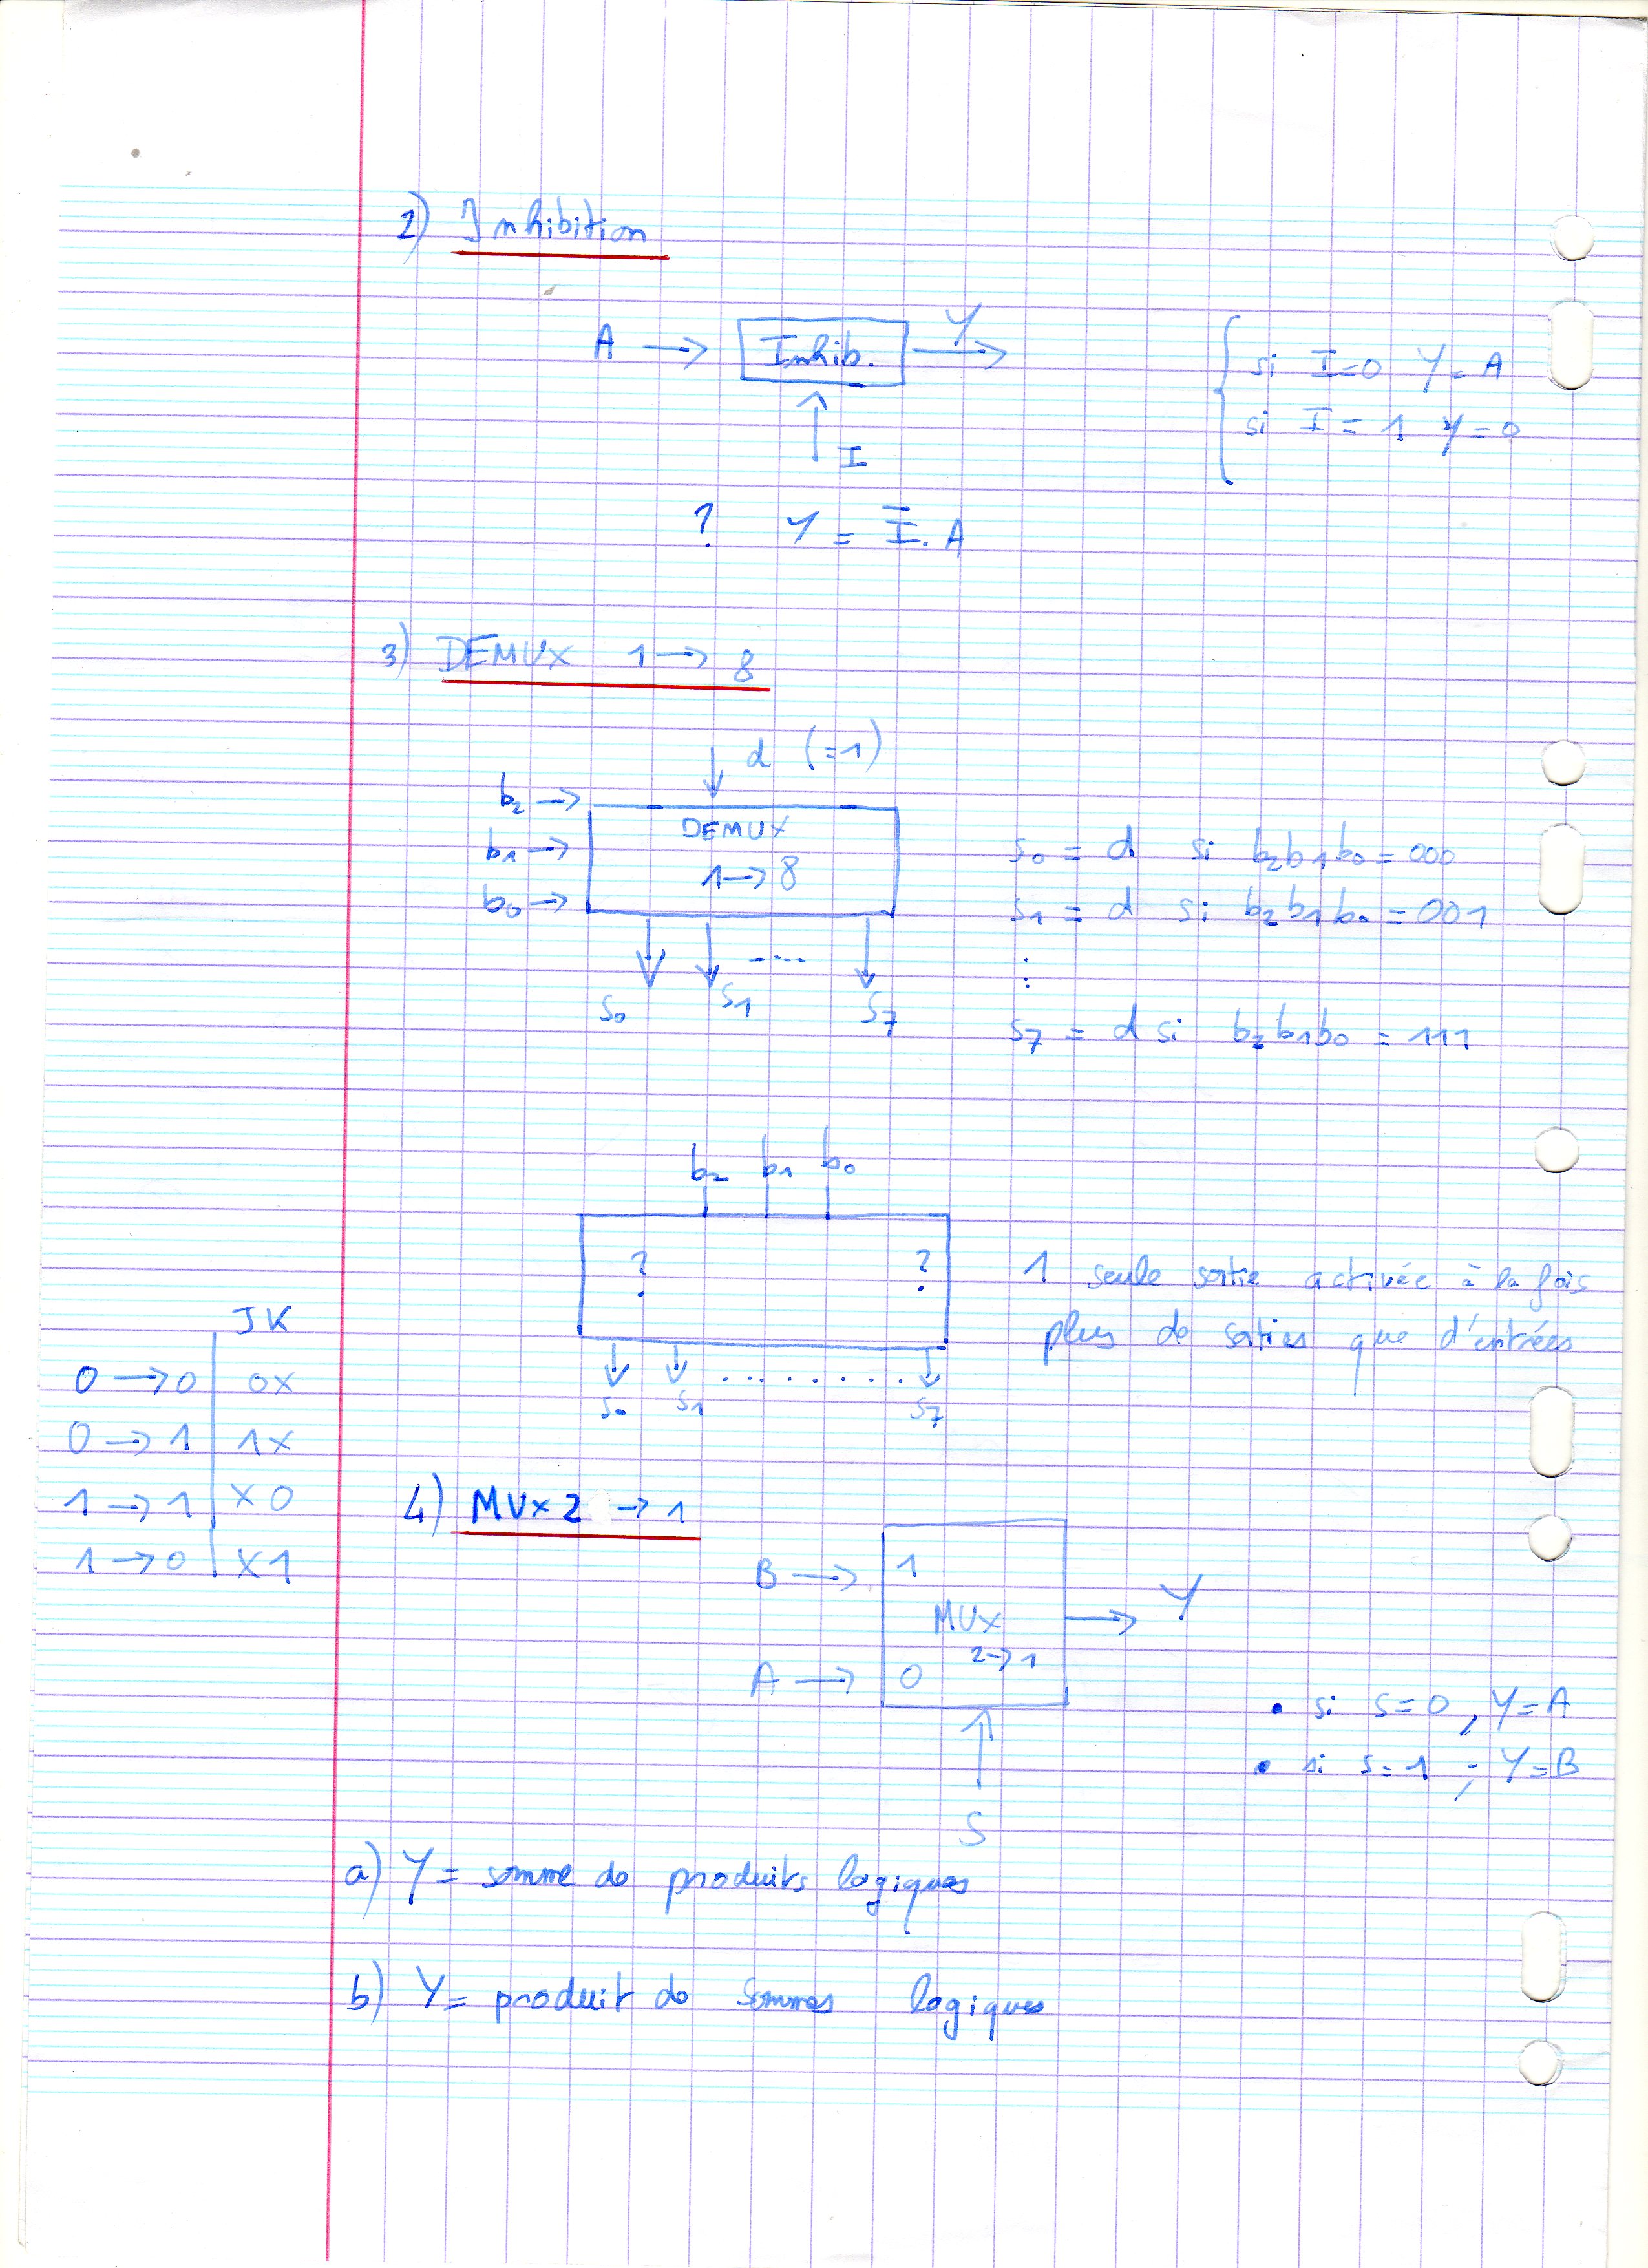 2) Inhibition
A → Inhib. Y
si I=0 Y=A
si I=1 Y=0
I
? Y = Ī.A
3) DEMUX 1→8
d (=1)
b₂ →
DEMUX
b₁ →
1→8
b₀ →
S₀ = d si b₂b₁b₀ = 000
S₁ = d si b₂b₁b₀ = 001
⋮
S₇ = d si b₂b₁b₀ = 111
S₀ S₁ ---- S₇
b₂ b₁ b₀
? ?
1 seule sortie activée à la fois
plus de sorties que d'entrées
S₀ S₁ .......... S₇
JK
0→0 0x
0→1 1x
1→1 x0
1→0 x1
4) MUX 2 → 1
B → 1
MUX
2→1
→ Y
A → 0
S
• si S=0, Y=A
• si S=1; Y=B
a) Y = somme de produits logiques
b) Y = produit de sommes logiques